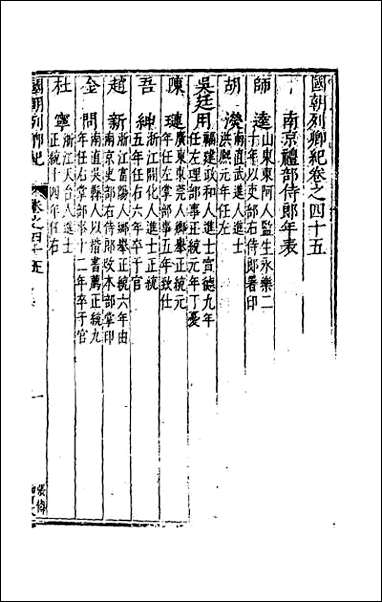 國朝列卿紀卷之四十五
南京禮部侍郎年表
師逵 山東東阿人監生永樂二
十年以吏部右侍郎署印
胡濙 南直武進人進士
洪熙元年任左
吳廷用 福建政和人進士宣德九年
任左理部事正統元年丁憂
陳璉 廣東東莞人鄉舉正統元
年任左掌部事五年致仕
吾紳 浙江開化人進士正統
五年任右六年卒于官
趙新 浙江富陽人鄉舉正統六年由
南京吏部右侍郎改本部掌印
金問 南直吳縣人以楷書薦正統九
年任右掌部事十二年卒于官
杜寧 浙江天台人進士
正統十四年任右
國朝列卿紀
卷之四十五
一